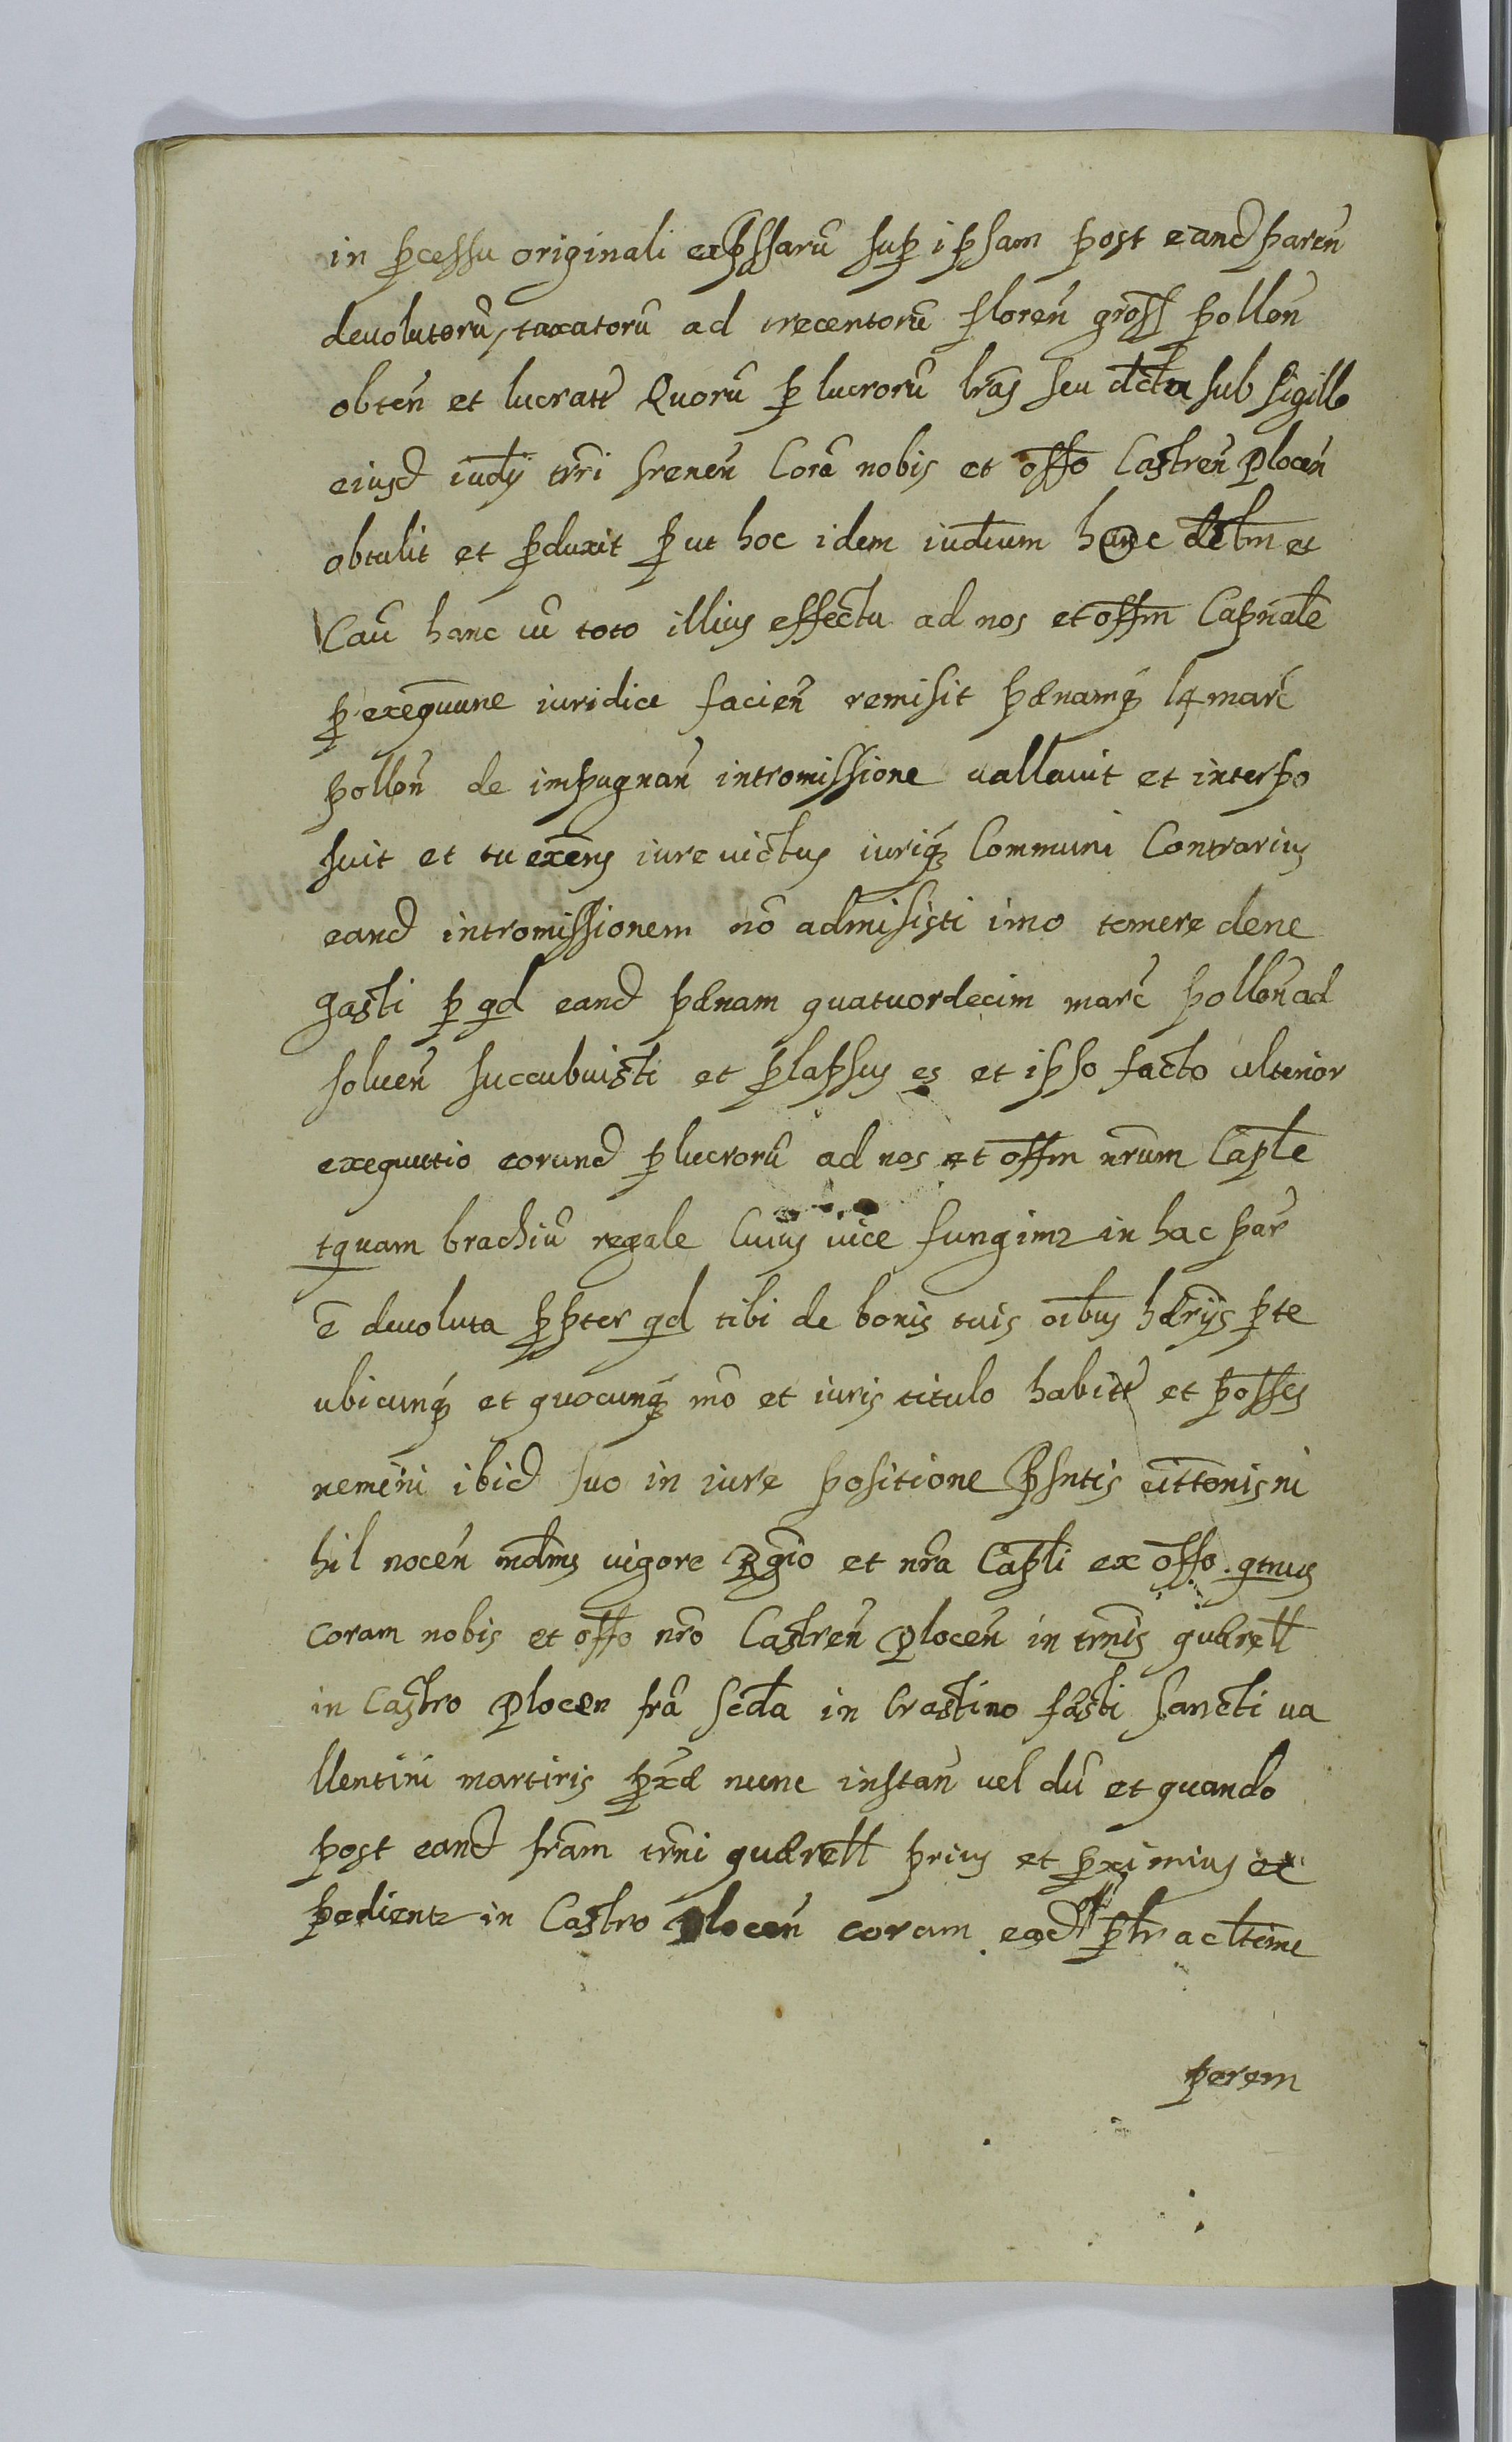 in ꝓcessu originali exp̃ssarũ suꝑ ipsam post eand paren̄
deuolutorũ, taxatorũ ad trecentorũ floren̄ gross̃ pollon̄
obten̄ et lucratt Quorũ ꝑ lucrorũ lr̃as seu dctа sub sigillo
eiusd iudỹ trr̃i srenen̄ Corã nobis et offo Castren̄ Plocen̄
obtulit et ꝓduxit ꝓ ut hoc idem iudcium hanc dectm̃ et
Caũ hanc cũ toto illius effectu ad nos et offm̃ Capnale
ꝓ exequutne iuridice facien̄ remisit pænamq̃ 14 marc̃
pollon̄ de impugnan̄ intromissione vallauit et interpo
suit et tu exens iure uictus iuriq̃ Communi Contrarius
eand intromissionem nõ admisisti imo temere dene
gasti ꝑ qd eand pænam quatuordecim marc̃ pollon̄ ad
soluen̄ succubuisti et ꝑlapsus es et ipso facto ulterior
exequutio eorund ꝑlucrorũ ad nos et offm̃ nr̃um Capl̃e
tquam brachiũ regale Cuius vice fungim⁊ in hac par̃
ẽ deuoluta ꝓpter qd tibi de bonis tuis oĩbus hær̃ijs ꝑ te
ubicunq̃ et quocunq̃ mõ et iuris titulo habitt et posses̃
nemini ibid suo in iure positione p̃sntis cittonis ni
hil nocen̄ mdm̃s uigore Rgio et nr̃a Capl̃i ex offo qtnus
coram nobis et offo nr̃o Castren̄ Plocen̄ in trm̃is quærell
in Castro Plocen fr̃a Scda in Crastino fæsti Sancti va
llentini martiris ꝓxæ nunc instan̄ vel dũ et quando
post eand fr̃am trm̃i quærell prius et ꝓximius ex
pedient⁊ in Castro Plocen̄ coram eod ꝑlr̃ ac lttime
perem